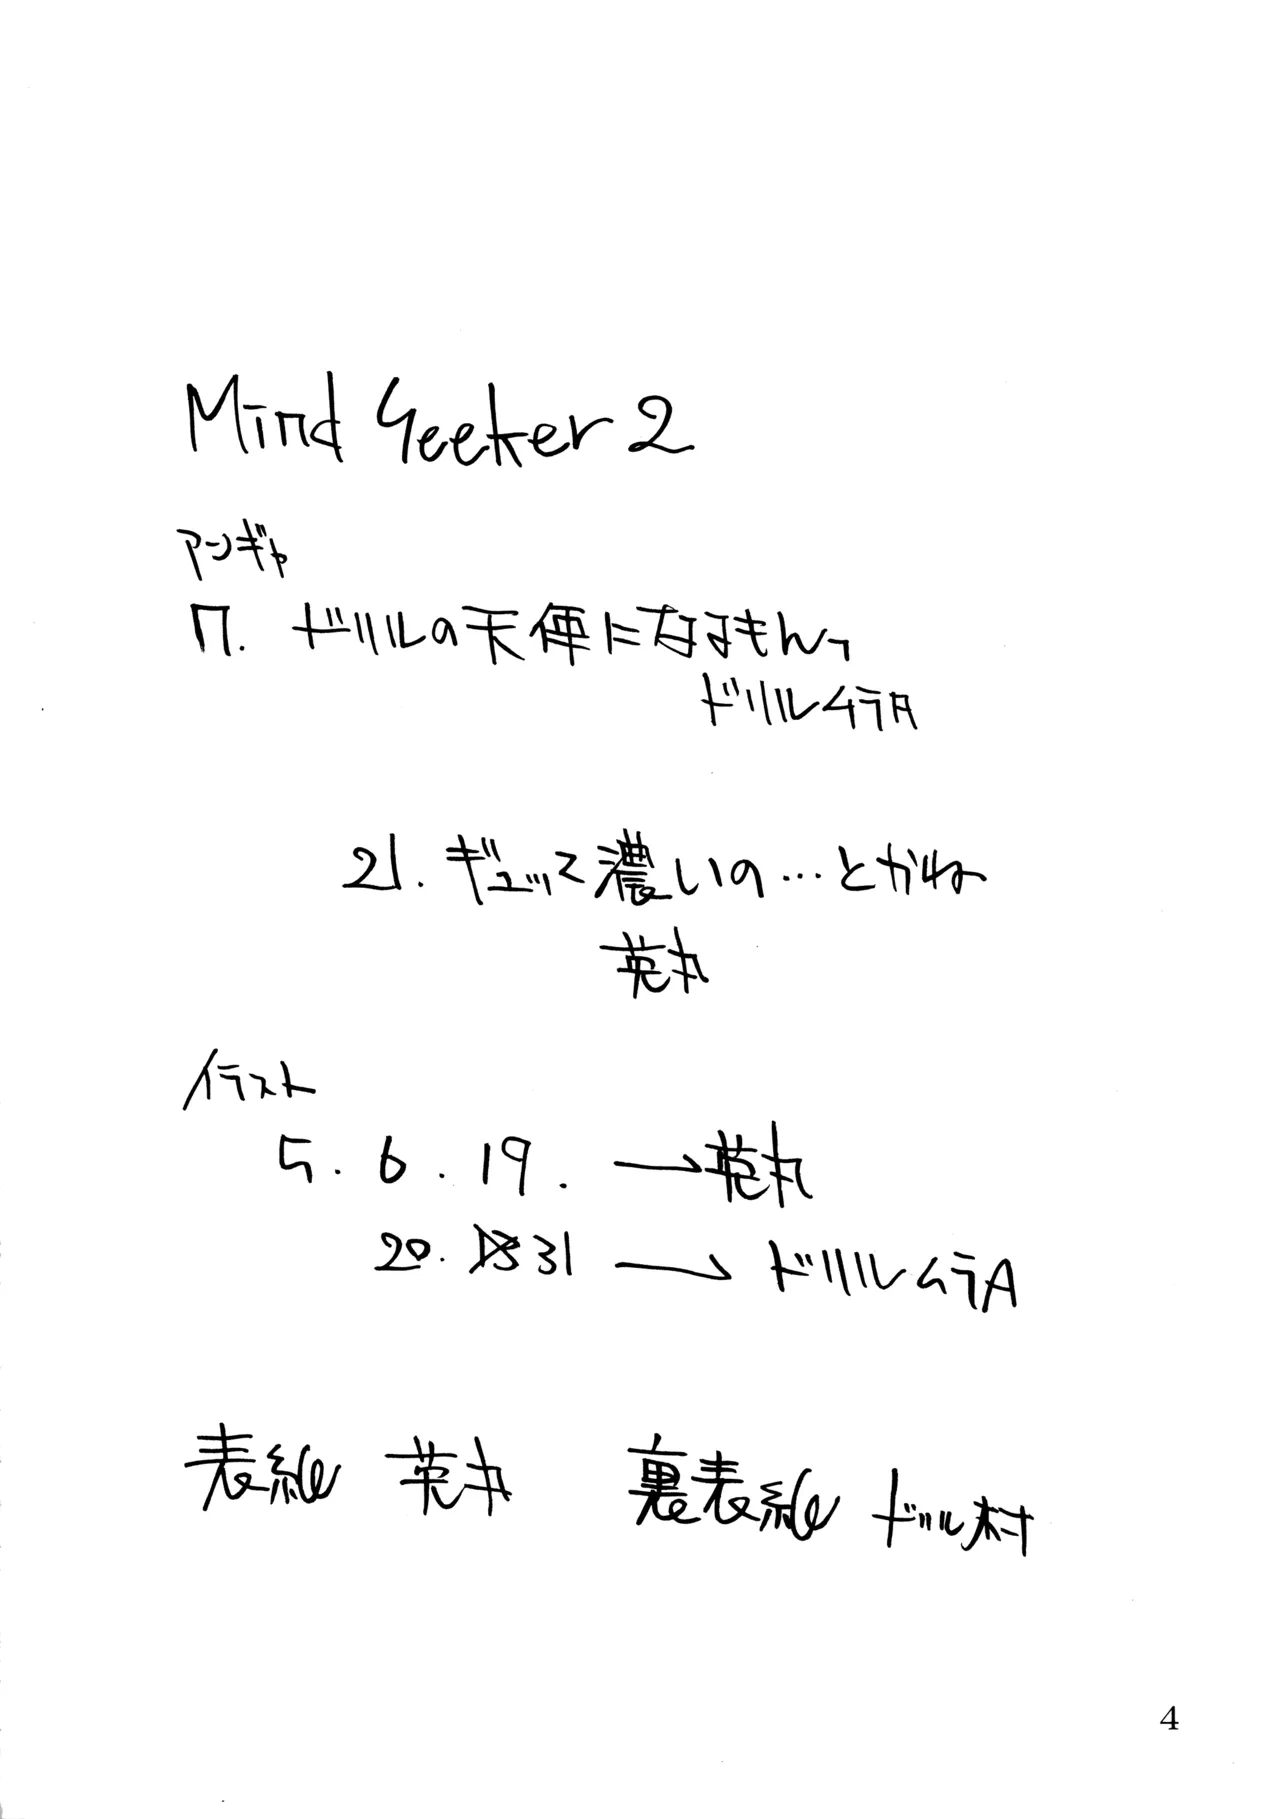 Mind Seeker 2
マンガ
7. ドリルの天使になるもんっ
ドリルムラA
21. ギュッて濃いの…とかね
英丸
イラスト
5. 6. 19. →英丸
20. 31 → ドリルムラA
表紙 英丸 裏表紙 ドリル村
4